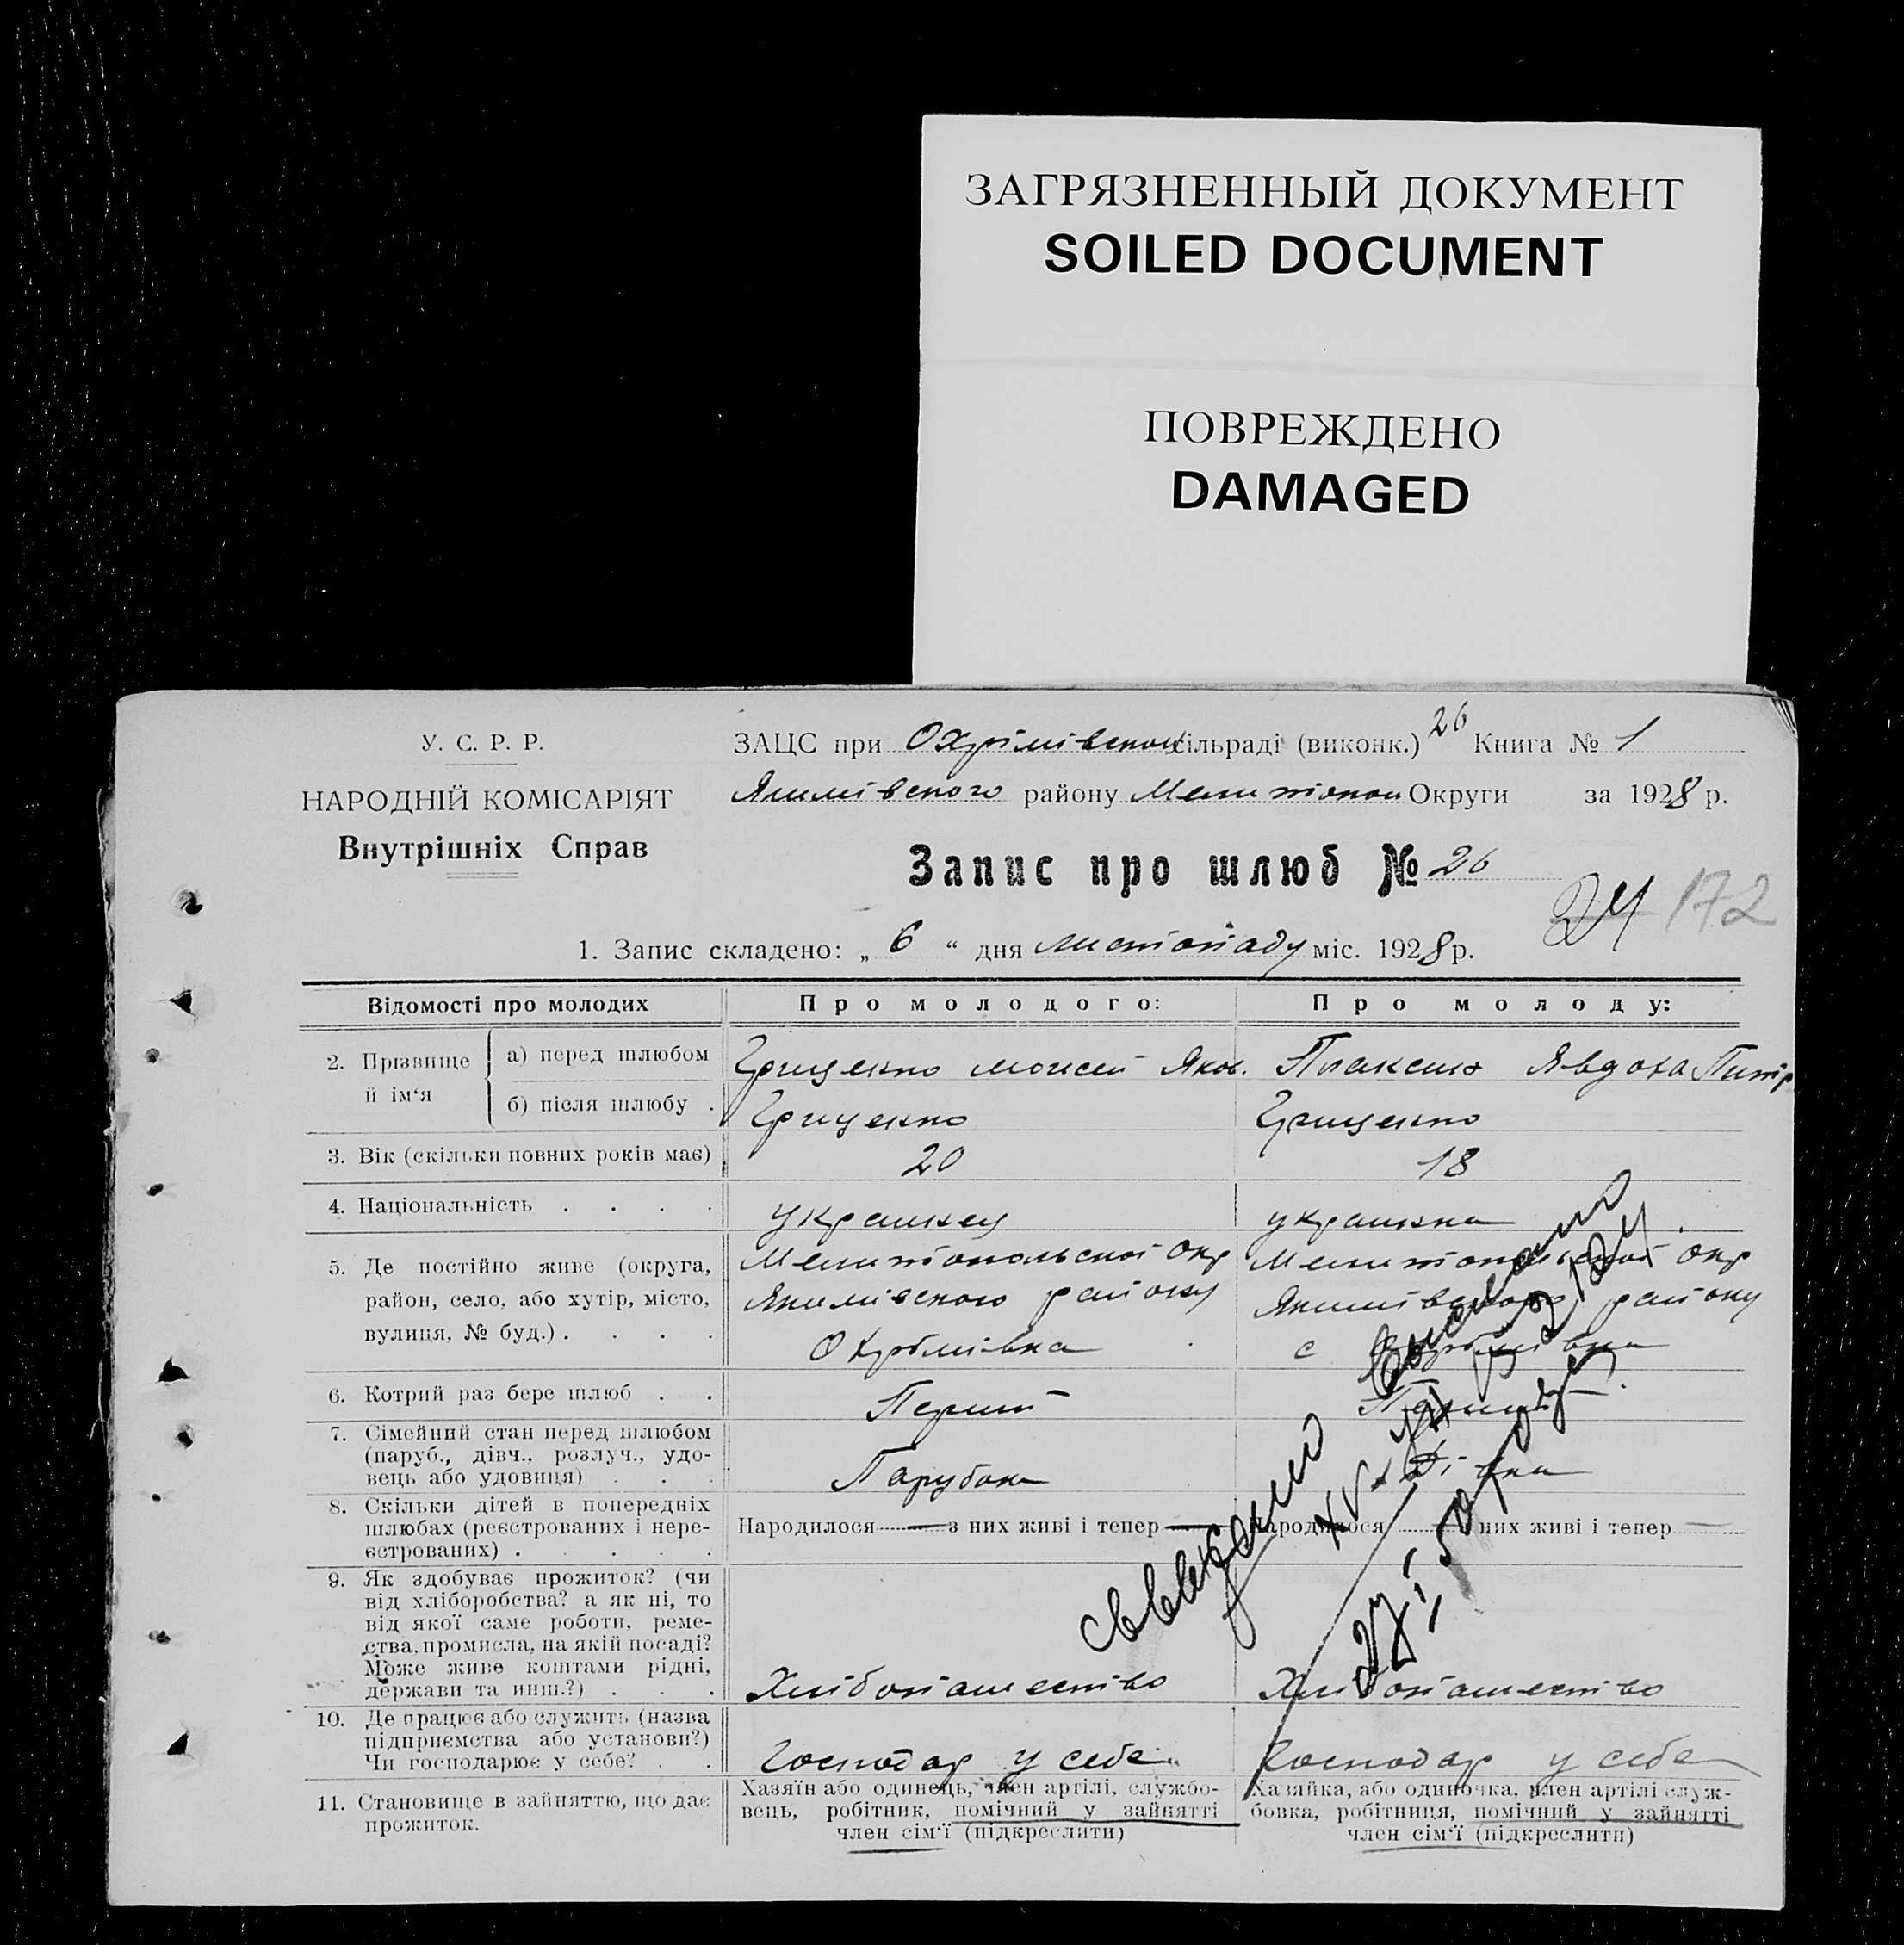 ЗАГРЯЗНЕННЫЙ ДОКУМЕНТ
SOILED DOCUMENT
ПОВРЕЖДЕНО
DAMAGED
У. С. Р. Р.
НАРОДНІЙ КОМІСАРІЯТ
Внутрішніх Справ
ЗАЦС при Охрімівскои сільраді (виконк.) 26 Книга № 1
Якимівського району Мелитопол Округи за 1928 р.
Запис про шлюб № 26
24 172
1. Запис складено: „ 6 “ дня листопаду міс. 1928 р.
Відомості про молодих
Про молодого:
Про молоду:
2. Прізвище й ім‘я
а) перед шлюбом
Грищенко Моисей Яков.
Плаксию Явдоха Питр
б) після шлюбу .
Грищенко
Грищенко
3. Вік (скільки повних років має)
20
18
4. Національність . . . .
украинец
украинка
5. Де постійно живе (округа,
район, село, або хутір, місто,
вулиця, № буд.) . . . .
Мелитопольскої окр
Якимівского району
Охрімівка
Мелитопольскої окр
Якимівского району
с Охрімівка
6. Котрий раз бере шлюб . .
Перший
Перший
7. Сімейний стан перед шлюбом
(паруб., дівч., розлуч., удо-
вець або удовиця) . . .
Парубок
8. Скільки дітей в попередніх
шлюбах (реєстрованих і нере-
єстрованих) . . . . .
Народилося — з них живі і тепер —
Народилося них живі і тепер —
9. Як здобуває прожиток? (чи
від хліборобства? а як ні, то
від якої саме роботи, реме-
ства, промисла, на якій посаді?
Може живе коштами рідні,
держави та инш.?) . . .
Хлібопашество
Хлібопашество
10. Де працює або служить (назва
підприємства або установи?)
Чи господарює у себе? . .
Господар у себе
Господар у себе
11. Становище в зайняттю, що дає
прожиток.
Хазяїн або одинець, член артілі, службо-
вець, робітник, помічний у зайнятті
член сім‘ї (підкреслити)
Хазяйка, або одиночка, член артілі служ-
бовка, робітниця, помічний у зайнятті
член сім‘ї (підкреслити)